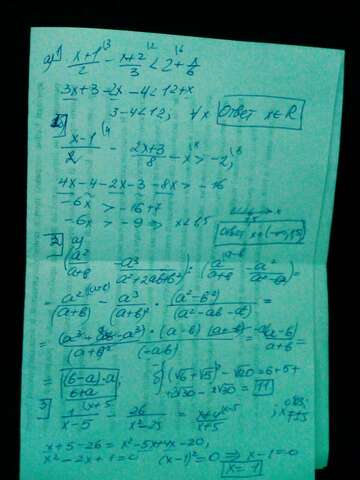 a) x+1/2 - x+2/3 < 2 + x/6
3x+3-2x-4<12+x
3-4<12; ∀x Ответ x∈R
x-1/2 - 2x+3/8 - x > -2
4x-4-2x-3-8x > -16
-6x > -16+7
-6x > -9 ⇒ x<1,5
2) a)
(a²/a+b - a³/a²+2ab+b²) : (a/a+b - a²/a²-b²) =
= (a²(a+b)/(a+b)² - a³/(a+b)²) · (a²-b²)/(a²-ab-a²) =
= (b-a)·a/b+a
б) (√6+√5)² - √120 = 6+5+
+2√30-2√30 = 11
3) 1/x-5 - 26/x²-25 = x+4/x+5
x+5-26=x²-5x+4x-20;
x²-2x+1=0 (x-1)²=0 ⇒ x-1=0
x=1